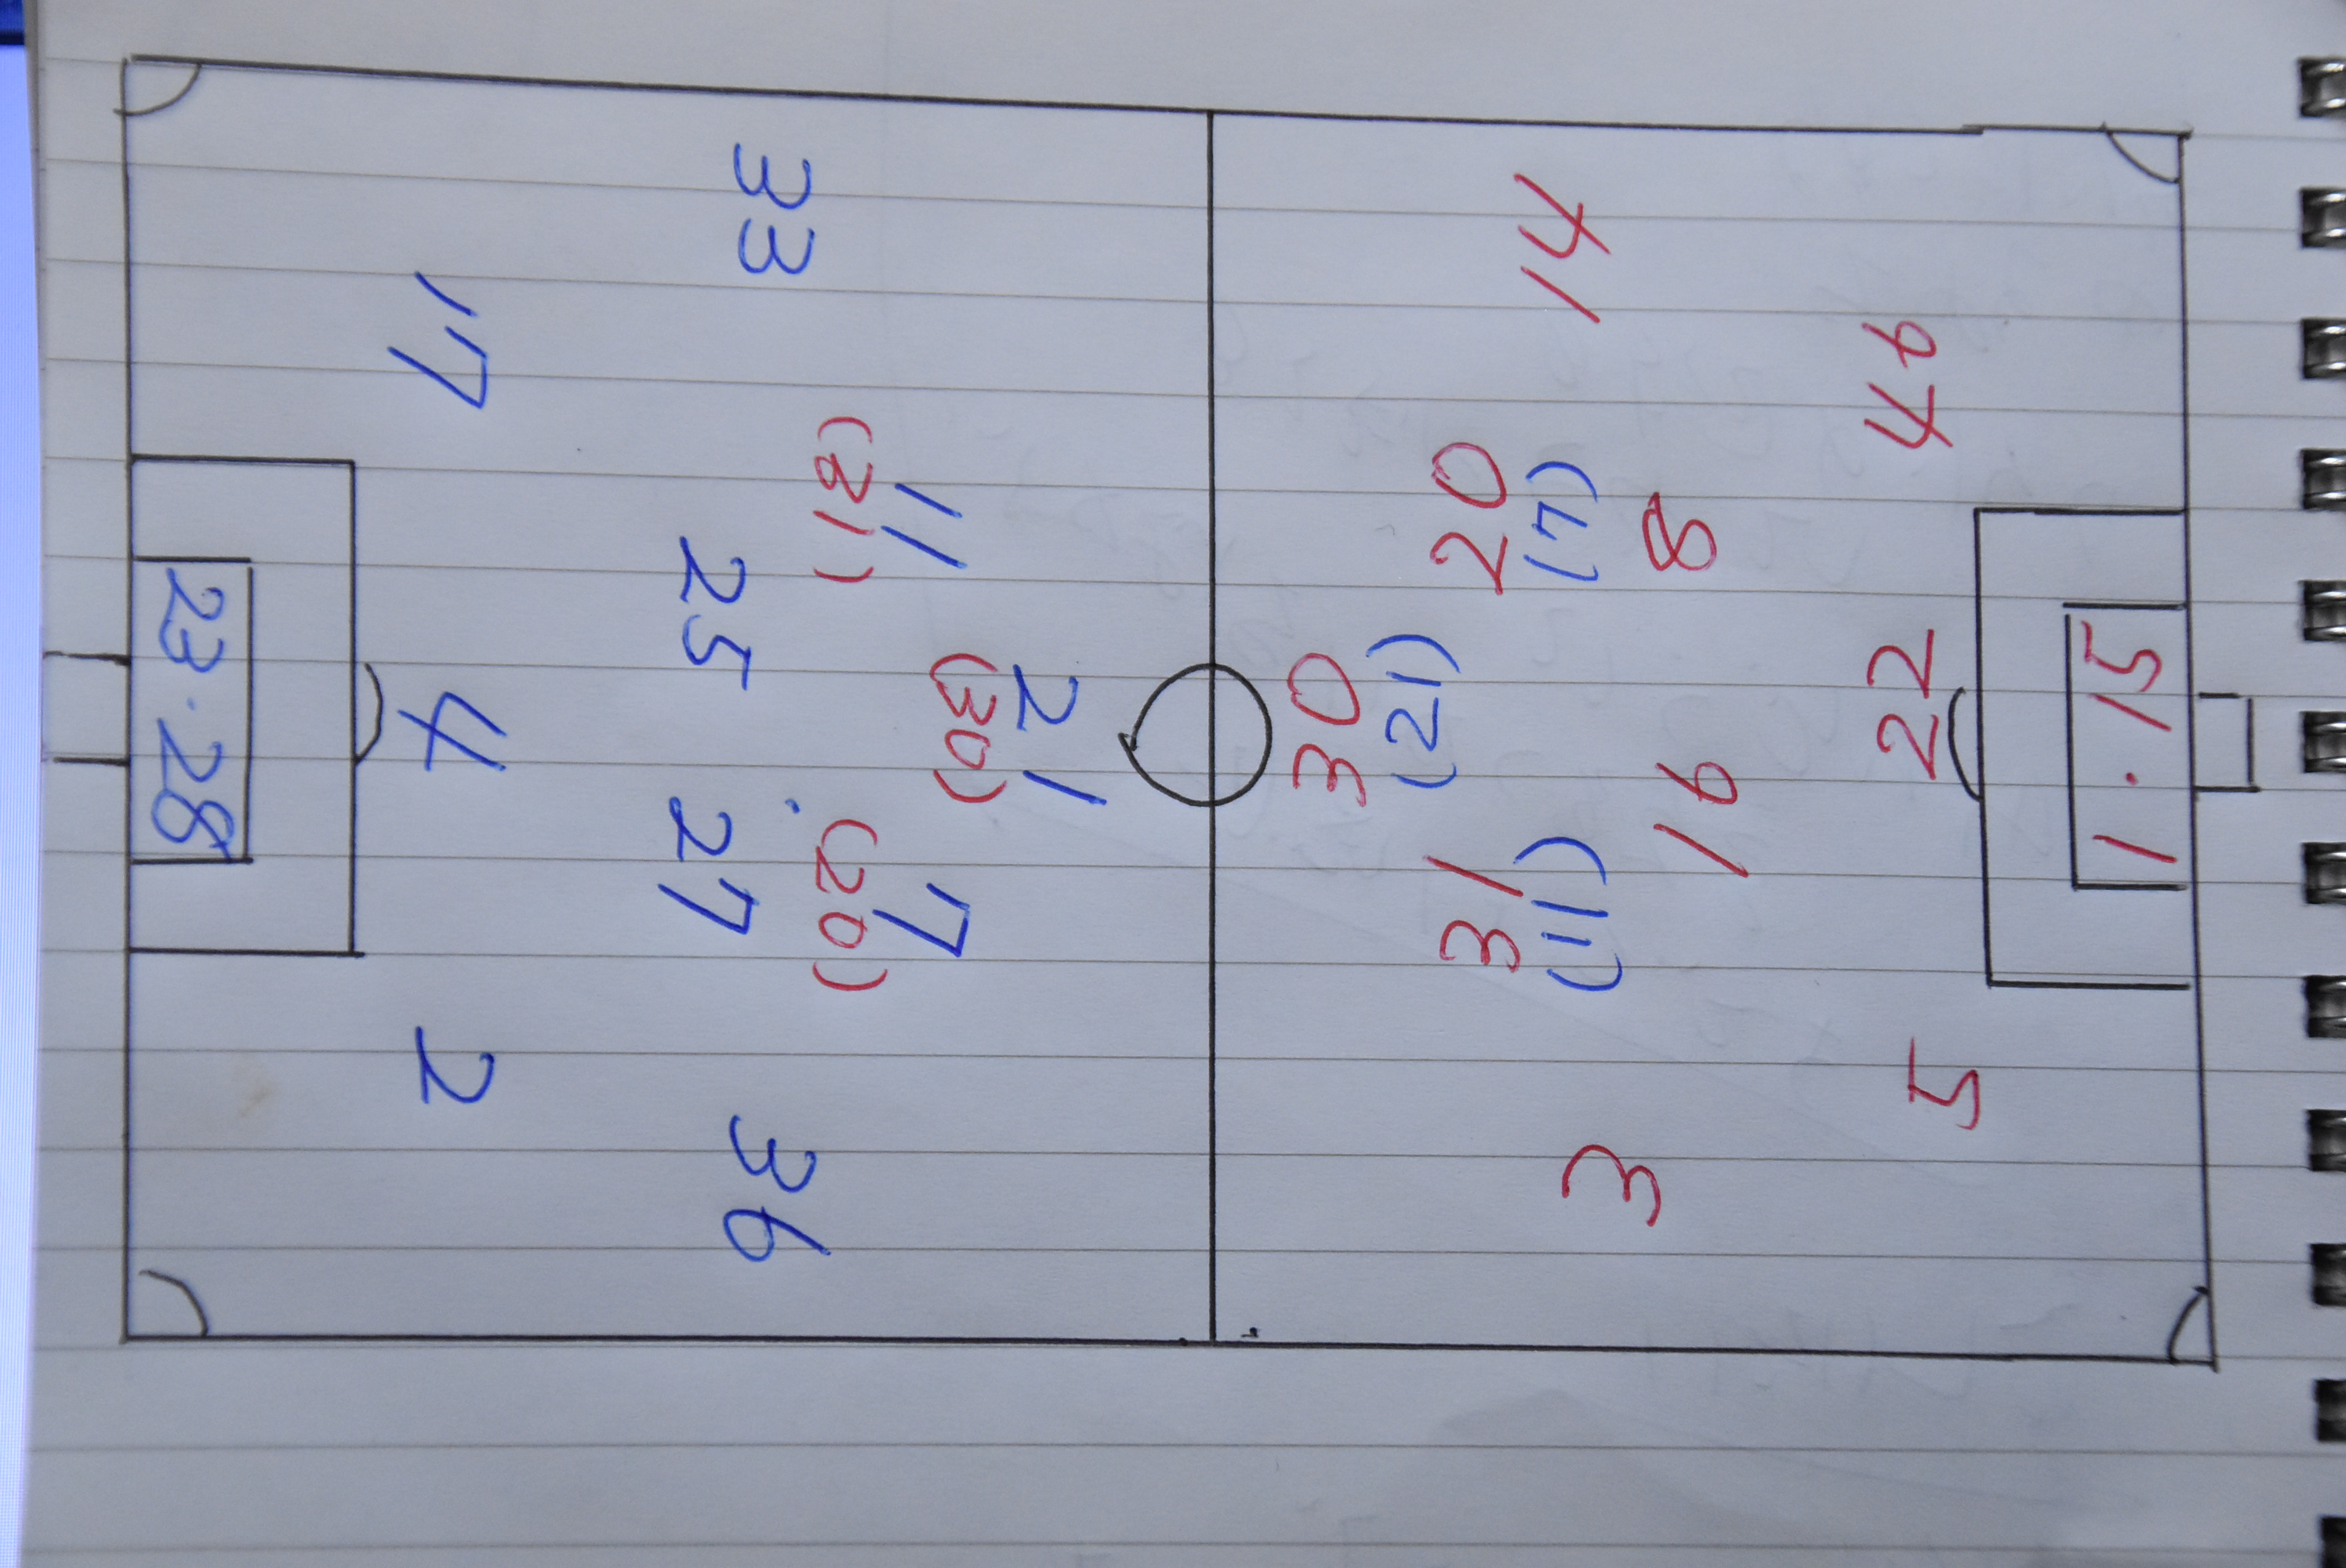 21
(30)
11 7
(31) (20)
33 36
25 27
17 4 2
23・28
30
(21)
31 20
(11) (7)
3 14
16 8
5 22 46
1・15